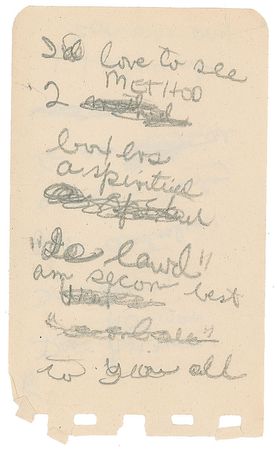 I'd love to see
METHOD
2
boxers
a spiritual
"De lawd"
am secon best
to you all